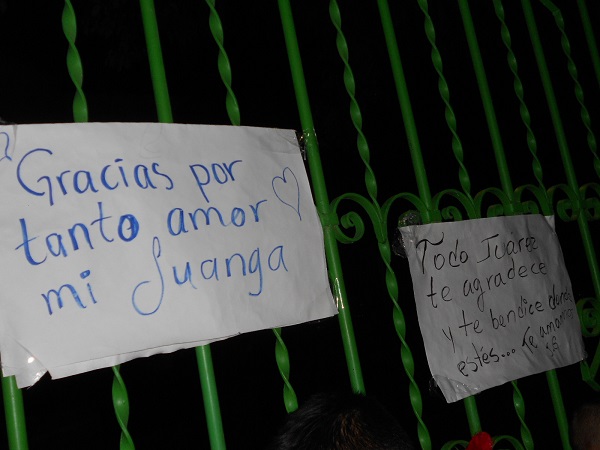 Gracias por
tanto amor
mi Juanga
Todo Juárez
te agradece
y te bendice donde
estés... Te amamos